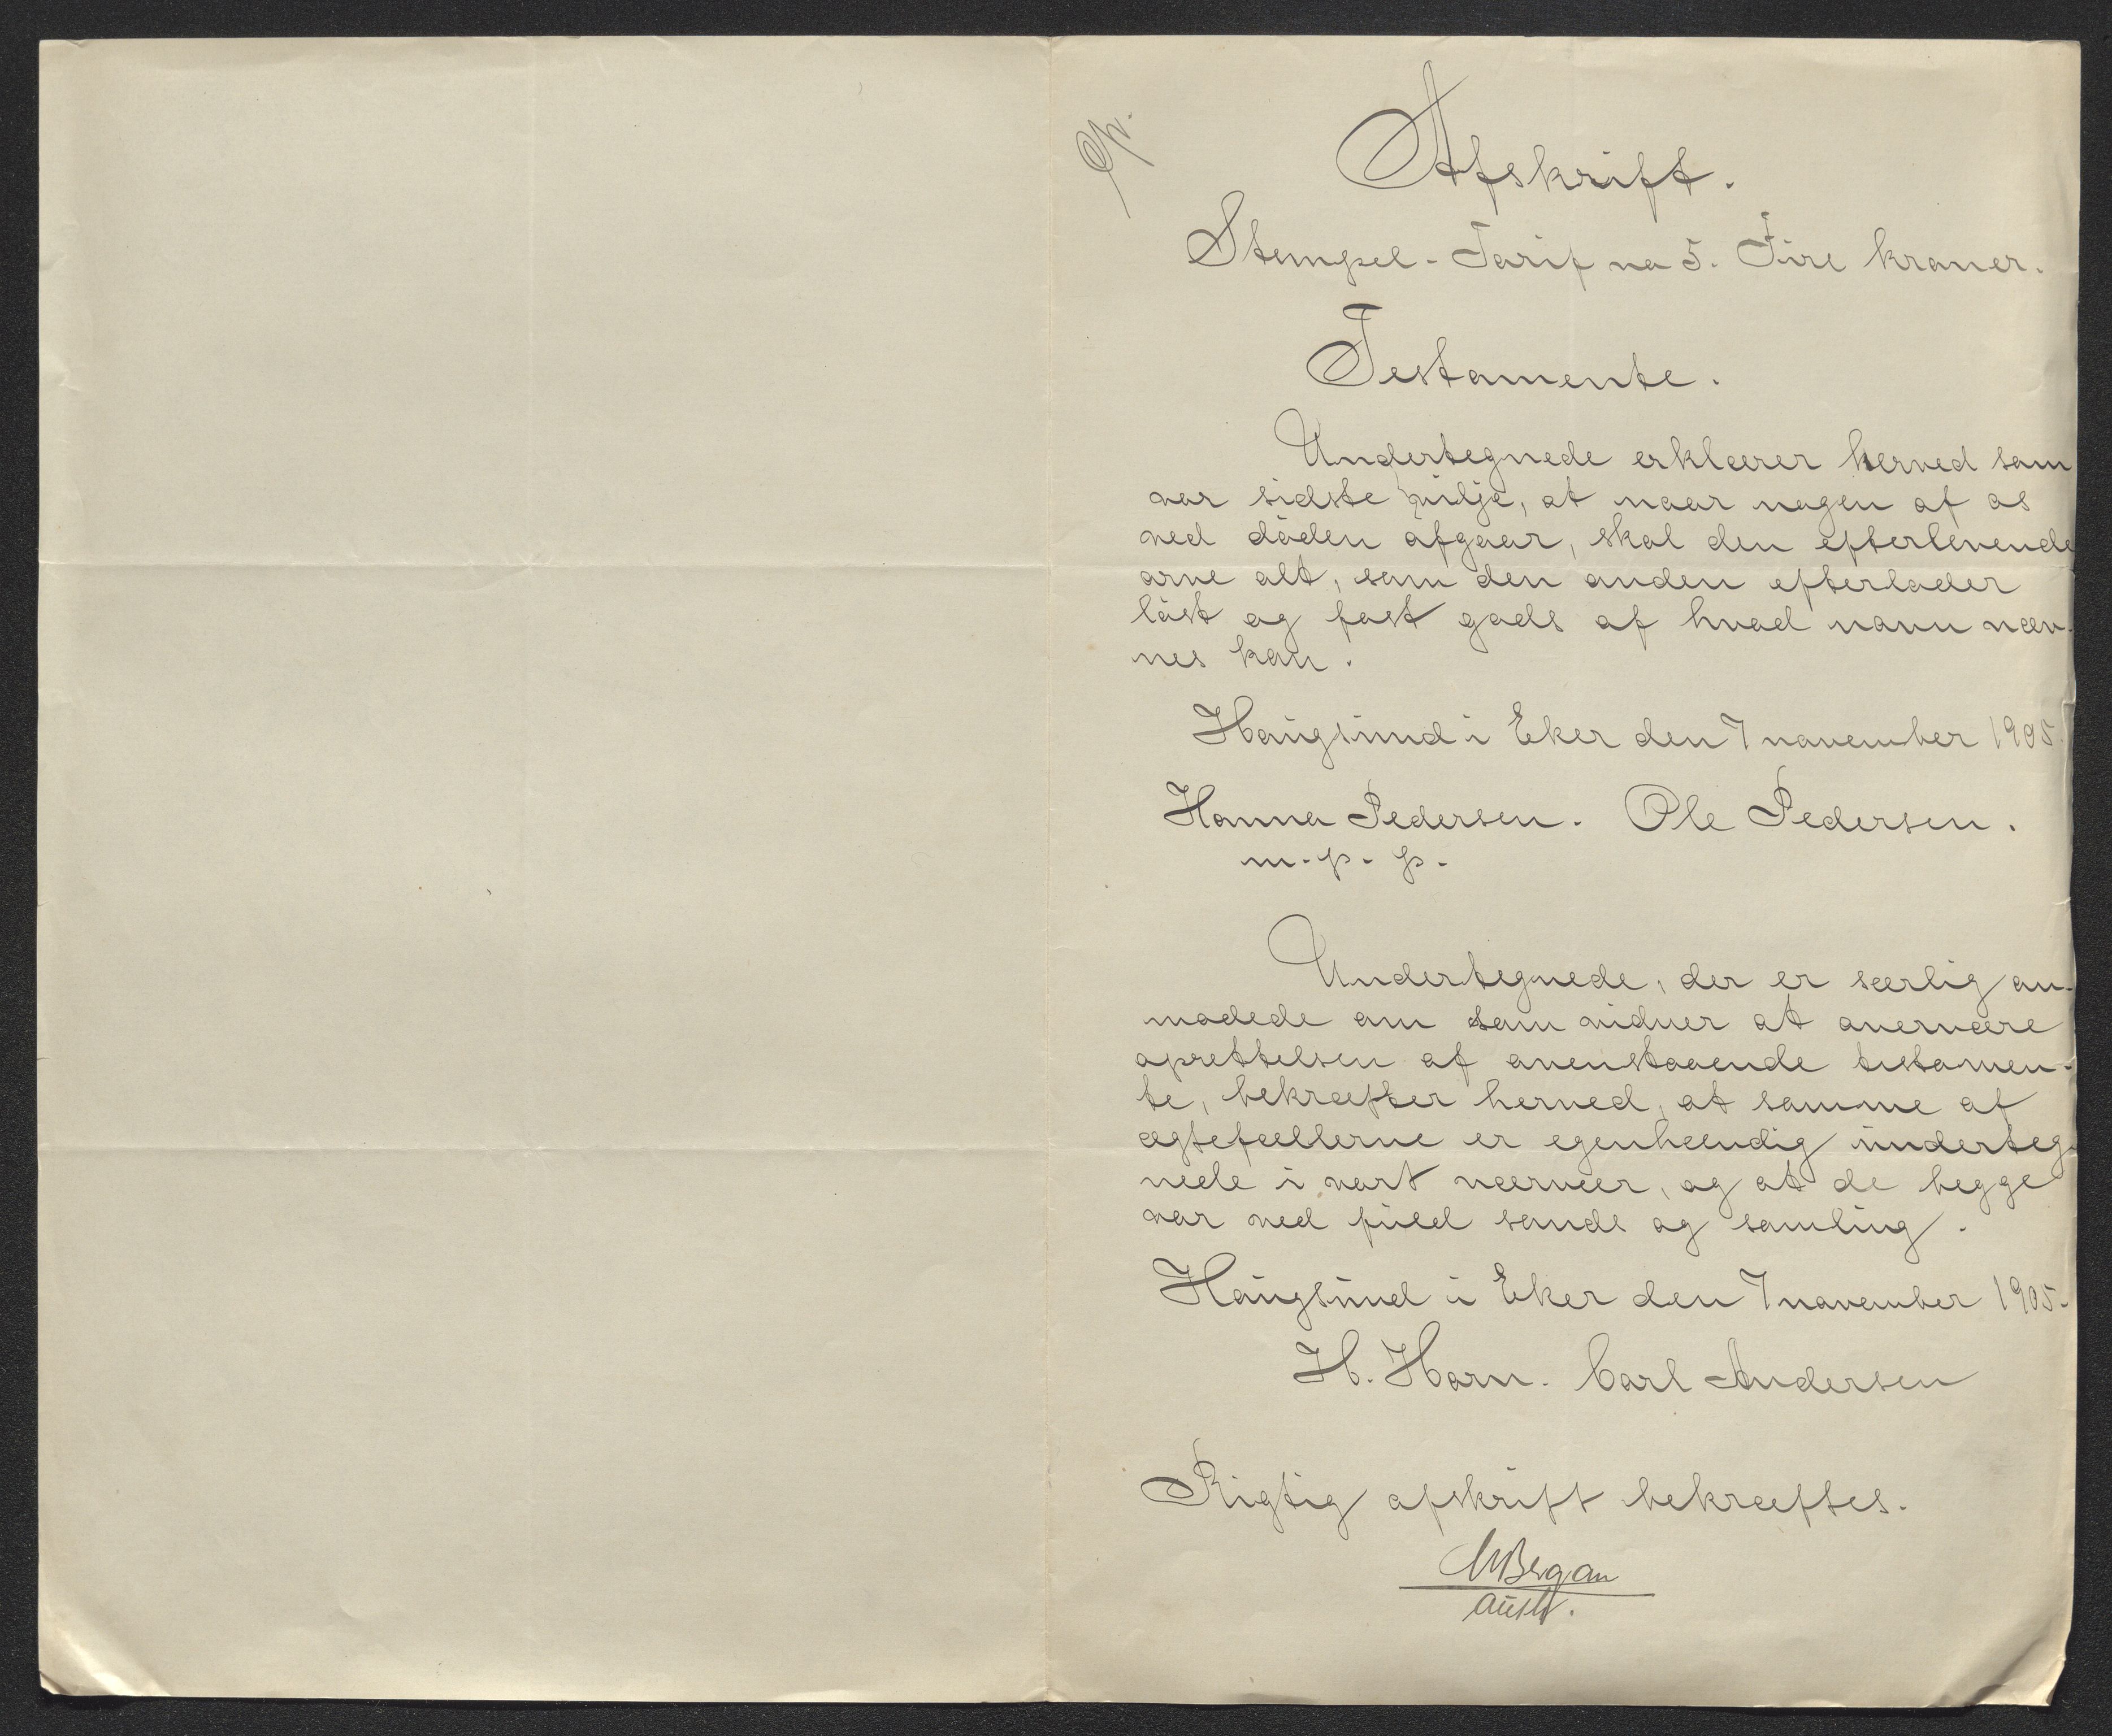 Afskrift.
Stempel-Tarif no 5. Fire kroner.
Testamente.
Undertegnede erklærer herved som
vor sidste vilje, at naar nogen af os
ved döden afgaar, skal den efterlevende
arve alt, som den anden efterlader
löst og fast gods af hvad navn næv-
nes kan.
Haugsund i Eker den 7 november 1905.
Hanna Pedersen. Ole Pedersen.
m. p. p.
Undertegnede, der er særlig an-
modede om som vidner at overvære
oprettelsen af ovenstaaende testamen-
te, bekræfter herved, at samme af
ægtefællerne er egenhændig underteg-
nede i vort nærvær, og at de begge
var ved fuld sands og samling.
Haugsund i Eker den 7 november 1905.
H. Horn. Carl Andersen
Rigtig afskrift bekræftes.
Bergan